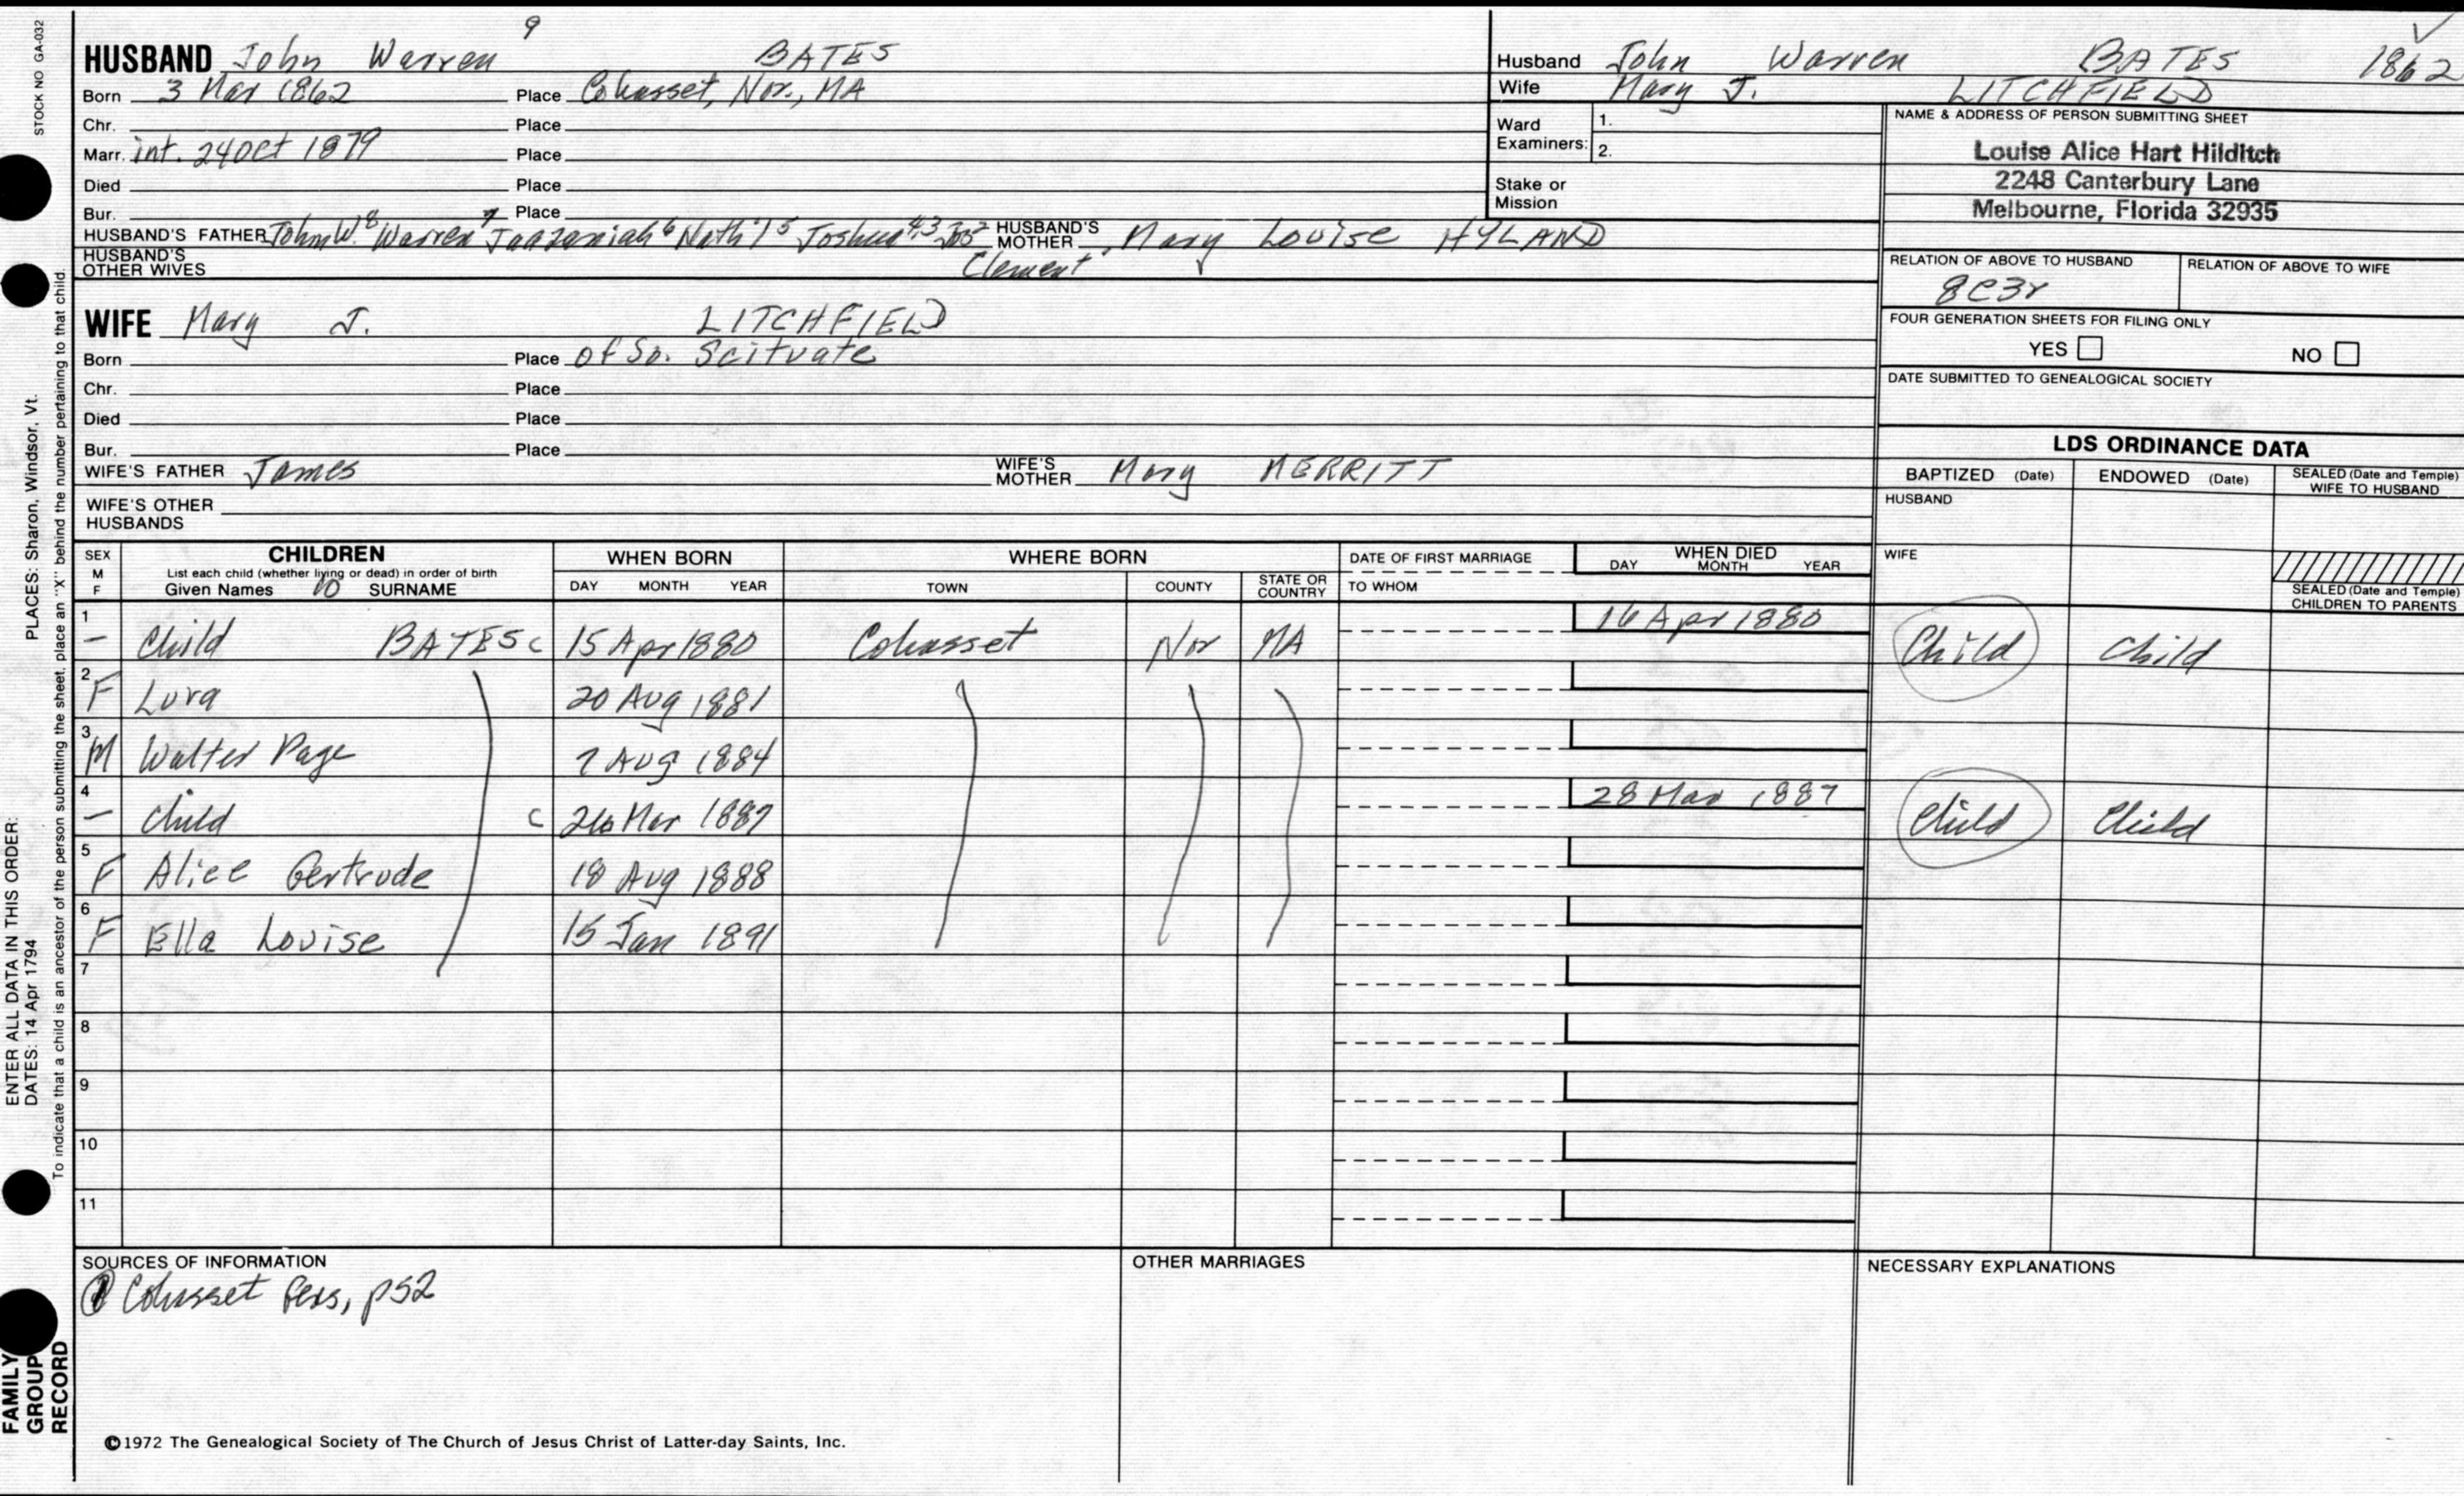 STOCK NO GA-032
9
HUSBAND John Warren BATES
Born 3 Mar 1862 Place Cohasset, Nor., MA
Chr. Place
Marr. int. 24 Oct 1879 Place
Died Place
Bur. Place
HUSBAND'S FATHER John W.8 Warren7 Jaazaniah6 Nath'l5 Joshua4,3 Jos2 HUSBAND'S MOTHER Mary Louise HYLAND
Clement1
HUSBAND'S OTHER WIVES
WIFE Mary J. LITCHFIELD
Born Place of So. Scituate
Chr. Place
Died Place
Bur. Place
WIFE'S FATHER James WIFE'S MOTHER Mary MERRITT
WIFE'S OTHER HUSBANDS
Husband John Warren BATES 1862
Wife Mary J. LITCHFIELD
Ward Examiners: 1.
2.
Stake or Mission
NAME & ADDRESS OF PERSON SUBMITTING SHEET
Louise Alice Hart Hilditch
2248 Canterbury Lane
Melbourne, Florida 32935
RELATION OF ABOVE TO HUSBAND RELATION OF ABOVE TO WIFE
8C3r
FOUR GENERATION SHEETS FOR FILING ONLY
YES NO
DATE SUBMITTED TO GENEALOGICAL SOCIETY
LDS ORDINANCE DATA
BAPTIZED (Date) ENDOWED (Date) SEALED (Date and Temple) WIFE TO HUSBAND
HUSBAND
WIFE
SEALED (Date and Temple) CHILDREN TO PARENTS
SEX M F CHILDREN WHEN BORN WHERE BORN DATE OF FIRST MARRIAGE WHEN DIED
List each child (whether living or dead) in order of birth DAY MONTH YEAR
Given Names 10 SURNAME DAY MONTH YEAR TOWN COUNTY STATE OR COUNTRY TO WHOM
1 – Child BATES c 15 Apr 1880 Cohasset Nor MA 16 Apr 1880 Child Child
2 F Lura 20 Aug 1881
3 M Walter Page 7 Aug 1884
4 – child c 26 Mar 1887 28 Mar 1887 Child Child
5 F Alice Gertrude 18 Aug 1888
6 F Ella Louise 15 Jan 1891
7
8
9
10
11
SOURCES OF INFORMATION OTHER MARRIAGES NECESSARY EXPLANATIONS
1 Cohasset Gens, p52
©1972 The Genealogical Society of The Church of Jesus Christ of Latter-day Saints, Inc.
ENTER ALL DATA IN THIS ORDER: PLACES: Sharon, Windsor, Vt.
DATES: 14 Apr 1794
To indicate that a child is an ancestor of the person submitting the sheet, place an "X" behind the number pertaining to that child.
FAMILY GROUP RECORD